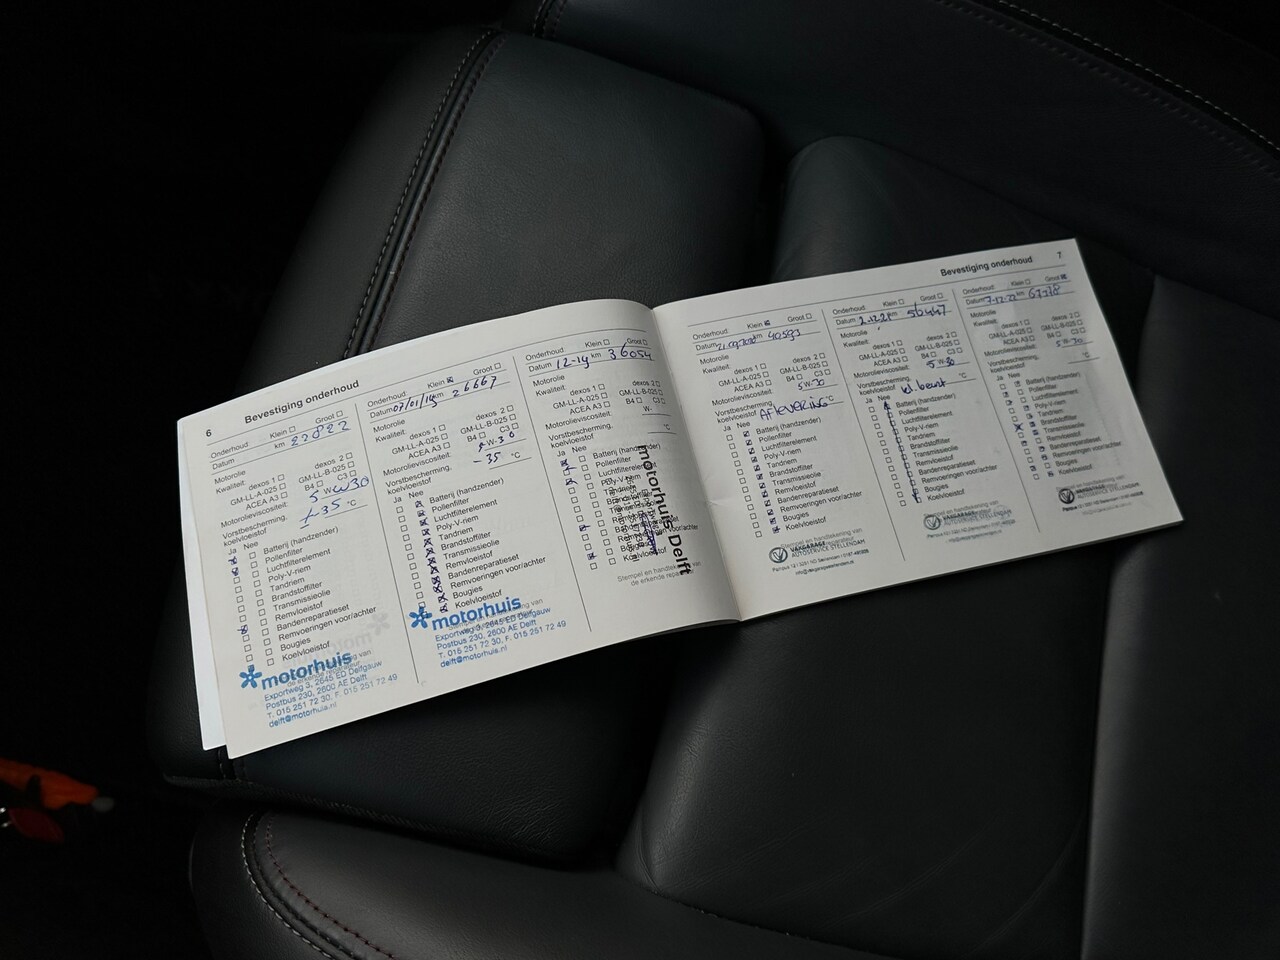 6
Bevestiging onderhoud
Onderhoud Klein Groot
Datum km
Kwaliteit: dexos 2
GM-LL-A-025 GM-LL-B-025
ACEA A3 B4 C3
Motorolieviscositeit: 5 W 30
Vorstbescherming
koelvloeistof -35 °C
Ja Nee
Batterij (handzender)
Pollenfilter
Luchtfilterelement
Poly-V-riem
Tandriem
Brandstoffilter
Transmissieolie
Remvloeistof
Bandenreparatieset
Remvoeringen voor/achter
Bougies
Koelvloeistof
motorhuis
Exportweg 3, 2645 ED Delfgauw
Postbus 230, 2600 AE Delft
T. 015 251 72 30, F. 015 251 72 49
delft@motorhuis.nl
Onderhoud Klein Groot
Datum 07/01/14 km 26667
Motorolie
Kwaliteit: dexos 1 dexos 2
GM-LL-A-025 GM-LL-B-025
ACEA A3 B4 C3
Motorolieviscositeit: W-30
Vorstbescherming
koelvloeistof -35 °C
Ja Nee
Batterij (handzender)
Pollenfilter
Luchtfilterelement
Poly-V-riem
Tandriem
Brandstoffilter
Transmissieolie
Remvloeistof
Bandenreparatieset
Remvoeringen voor/achter
Bougies
Koelvloeistof
motorhuis
Exportweg 3, 2645 ED Delfgauw
Postbus 230, 2600 AE Delft
T. 015 251 72 30, F. 015 251 72 49
delft@motorhuis.nl
Onderhoud Klein Groot
Datum 12-14 km 36054
Motorolie
Kwaliteit: dexos 1 dexos 2
GM-LL-A-025 GM-LL-B-025
ACEA A3 B4 C3
Motorolieviscositeit: W-
Vorstbescherming
koelvloeistof °C
Ja Nee
Batterij (handzender)
Pollenfilter
Luchtfilterelement
Poly-V-riem
Koelvloeistof
motorhuis Delft
Stempel en handtekening van
de erkende reparateur
Bevestiging onderhoud
7
Onderhoud Klein Groot
Datum km 40593
Motorolie
Kwaliteit: dexos 1 dexos 2
GM-LL-A-025 GM-LL-B-025
ACEA A3 B4 C3
Motorolieviscositeit: 5W-30
Vorstbescherming
koelvloeistof AFLEVERING °C
Ja Nee
Batterij (handzender)
Pollenfilter
Luchtfilterelement
Poly-V-riem
Tandriem
Brandstoffilter
Transmissieolie
Remvloeistof
Bandenreparatieset
Remvoeringen voor/achter
Bougies
Koelvloeistof
Stempel en handtekening van
VAKGARAGE
AUTOSERVICE STELLENDAM
Onderhoud Klein Groot
Datum km
Motorolie
Kwaliteit: dexos 1 dexos 2
GM-LL-A-025 GM-LL-B-025
ACEA A3 B4 C3
Motorolieviscositeit: 5 W-30
Vorstbescherming
koelvloeistof °C
Ja Nee
Batterij (handzender)
Pollenfilter
Luchtfilterelement
Poly-V-riem
Tandriem
Brandstoffilter
Transmissieolie
Remvloeistof
Bandenreparatieset
Remvoeringen voor/achter
Bougies
Koelvloeistof
VAKGARAGE
AUTOSERVICE STELLENDAM
Onderhoud Klein Groot
Datum 7-12-22 km
Motorolie
Kwaliteit: dexos 1 dexos 2
GM-LL-A-025 GM-LL-B-025
ACEA A3 B4 C3
Motorolieviscositeit: 5 W-30
Vorstbescherming
koelvloeistof °C
Ja Nee
Batterij (handzender)
Pollenfilter
Luchtfilterelement
Poly-V-riem
Tandriem
Brandstoffilter
Transmissieolie
Remvloeistof
Bandenreparatieset
Remvoeringen voor/achter
Bougies
Koelvloeistof
VAKGARAGE
AUTOSERVICE STELLENDAM